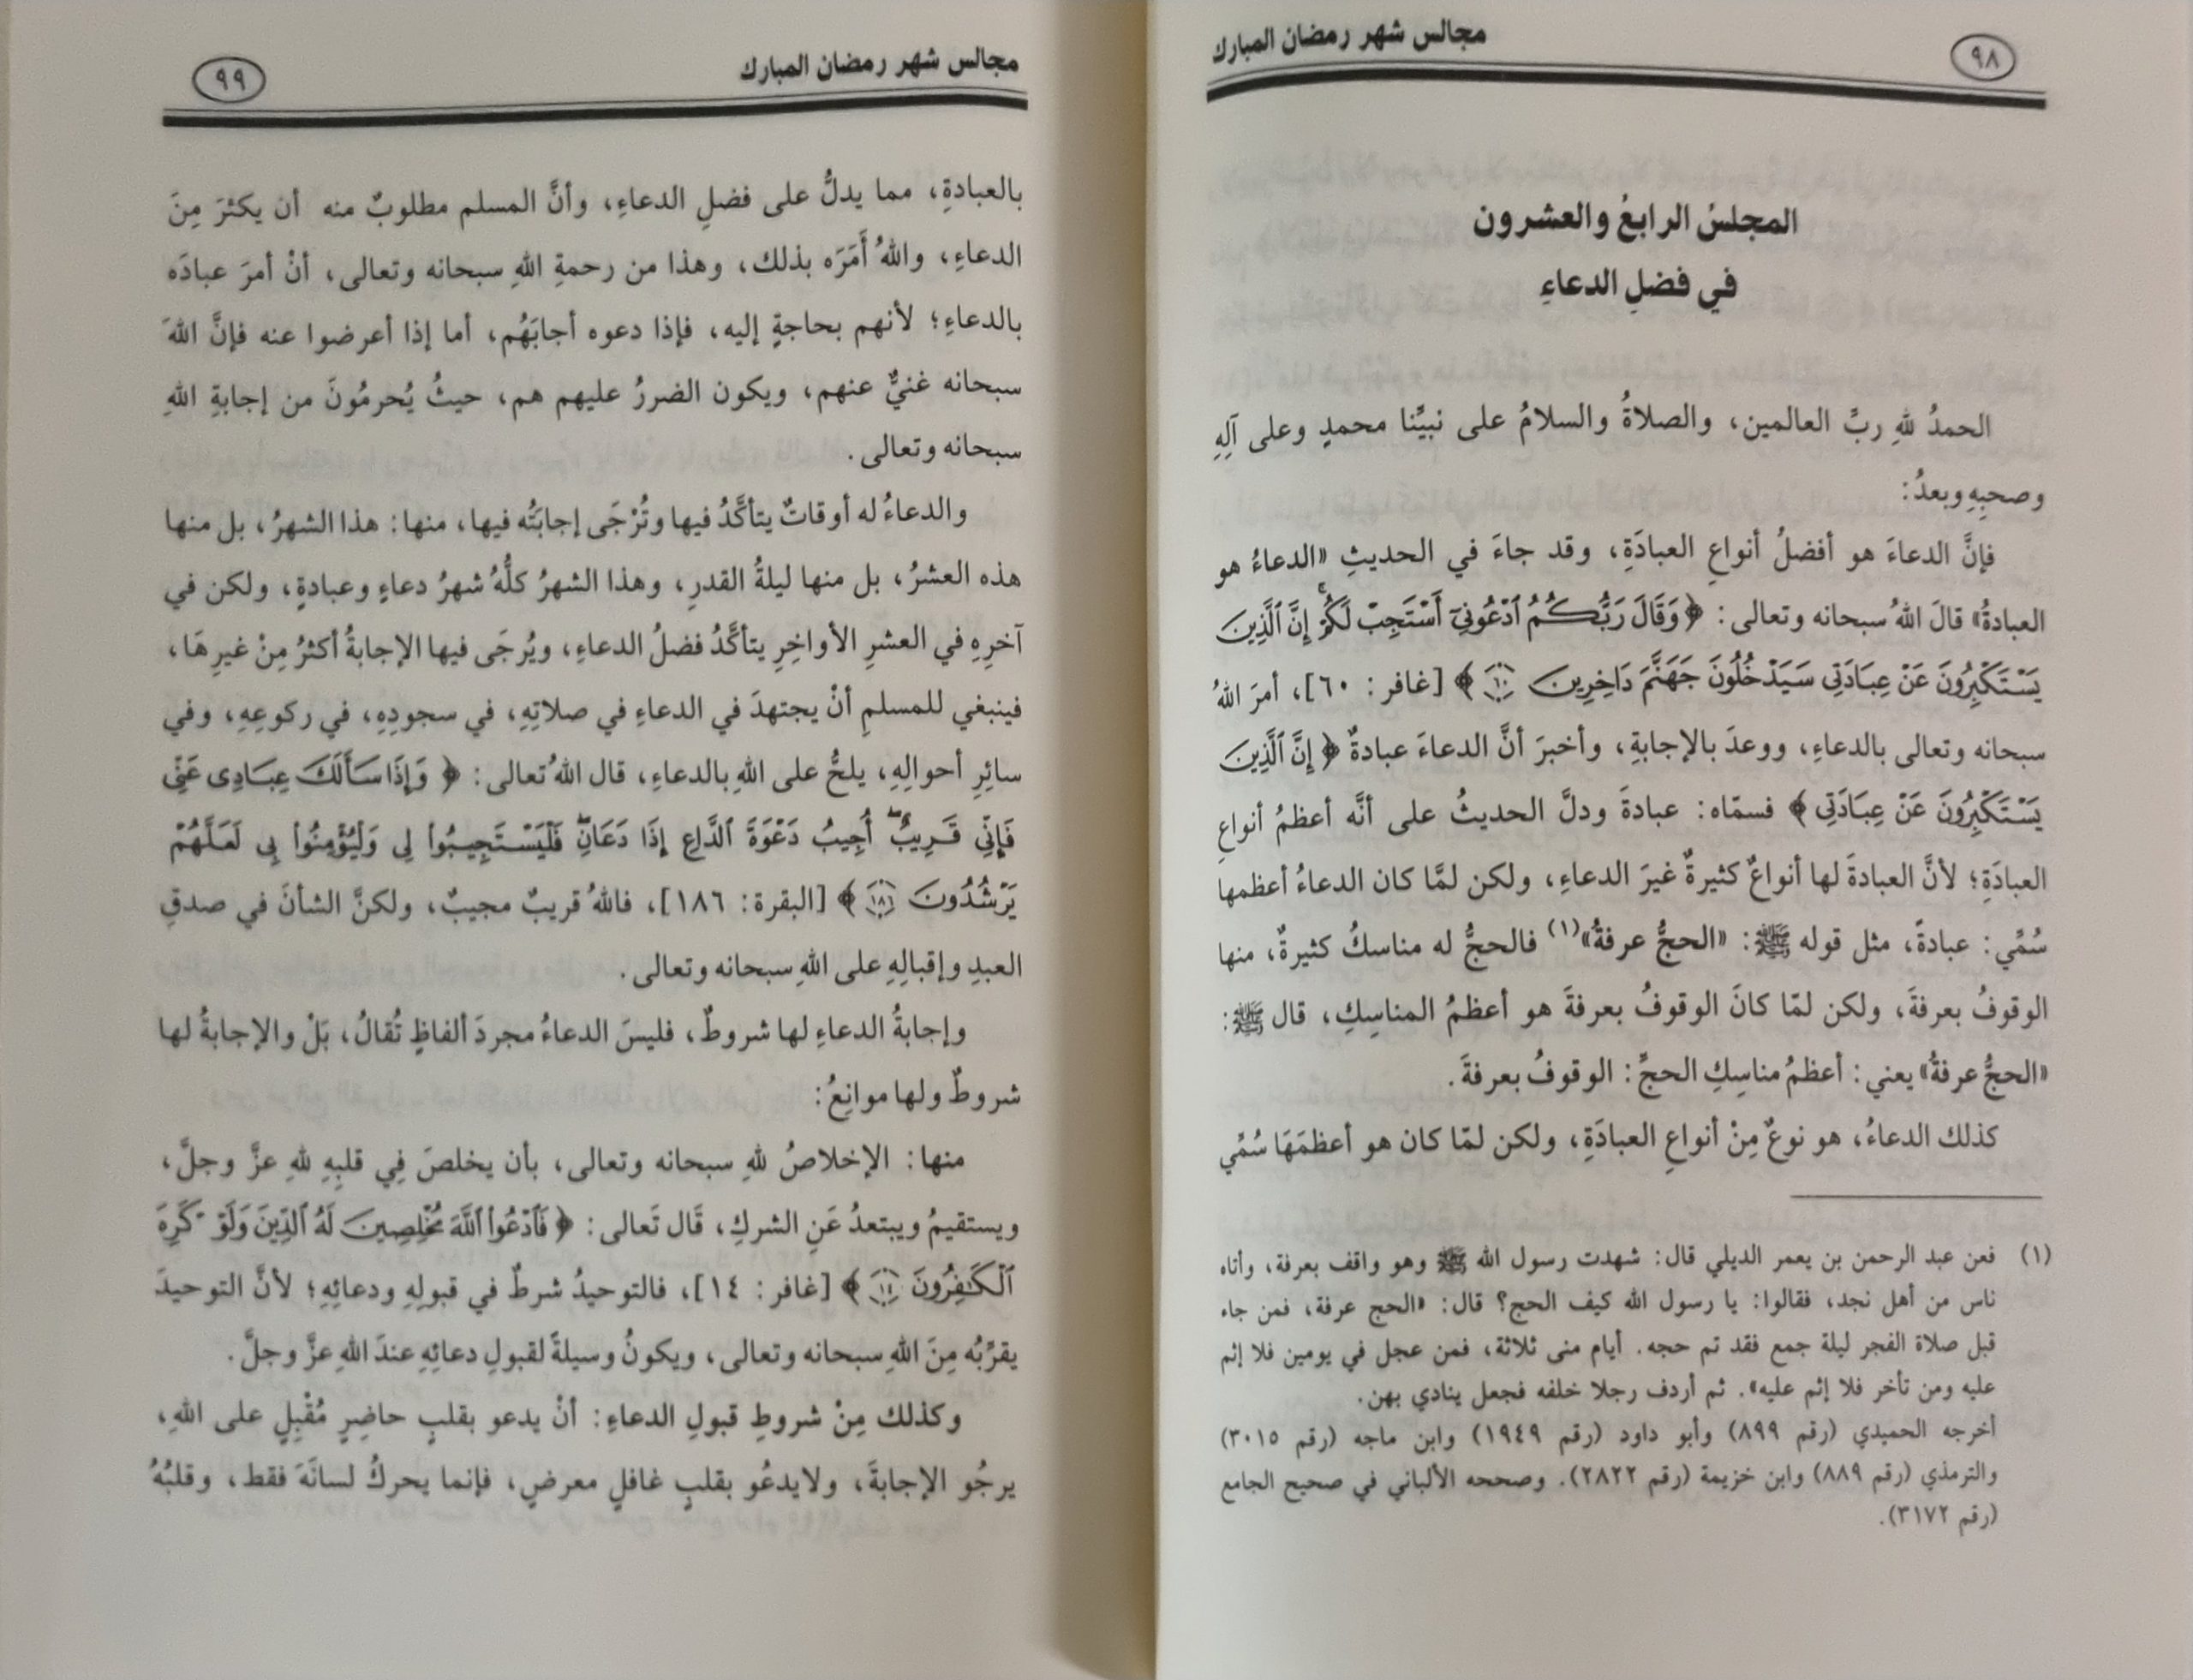 مجالس شهر رمضان المبارك
٩٨
المجلسُ الرابعُ والعشرون
في فضلِ الدعاءِ
الحمدُ للهِ ربِّ العالمين، والصلاةُ والسلامُ على نبيِّنا محمدٍ وعلى آلِهِ
وصحبِهِ وبعدُ:
فإنَّ الدعاءَ هو أفضلُ أنواعِ العبادَةِ، وقد جاءَ في الحديثِ «الدعاءُ هو
العبادةُ» قالَ اللهُ سبحانه وتعالى: ﴿ وَقَالَ رَبُّكُمُ ٱدْعُونِىٓ أَسْتَجِبْ لَكُمْۚ إِنَّ ٱلَّذِينَ
يَسْتَكْبِرُونَ عَنْ عِبَادَتِى سَيَدْخُلُونَ جَهَنَّمَ دَاخِرِينَ ٦٠ ﴾ [غافر: ٦٠]، أمرَ اللهُ
سبحانه وتعالى بالدعاءِ، ووعدَ بالإجابةِ، وأخبرَ أنَّ الدعاءَ عبادةٌ ﴿ إِنَّ ٱلَّذِينَ
يَسْتَكْبِرُونَ عَنْ عِبَادَتِى ﴾ فسمّاه: عبادةَ ودلَّ الحديثُ على أنَّه أعظمُ أنواعِ
العبادَةِ؛ لأنَّ العبادةَ لها أنواعٌ كثيرةٌ غيرَ الدعاءِ، ولكن لمَّا كان الدعاءُ أعظمها
سُمِّي: عبادةً، مثل قوله ﷺ: «الحجُّ عرفةُ»(١) فالحجُّ له مناسكُ كثيرةٌ، منها
الوقوفُ بعرفةَ، ولكن لمّا كانَ الوقوفُ بعرفةَ هو أعظمُ المناسِكِ، قال ﷺ:
«الحجُّ عرفةُ» يعني: أعظمُ مناسِكِ الحجِّ: الوقوفُ بعرفةَ.
كذلك الدعاءُ، هو نوعٌ مِنْ أنواعِ العبادَةِ، ولكن لمّا كان هو أعظمَهَا سُمِّي
(١) فعن عبد الرحمن بن يعمر الديلي قال: شهدت رسول الله ﷺ وهو واقف بعرفة، وأتاه
ناس من أهل نجد، فقالوا: يا رسول الله كيف الحج؟ قال: «الحج عرفة، فمن جاء
قبل صلاة الفجر ليلة جمع فقد تم حجه. أيام منى ثلاثة، فمن عجل في يومين فلا إثم
عليه ومن تأخر فلا إثم عليه». ثم أردف رجلا خلفه فجعل ينادي بهن.
أخرجه الحميدي (رقم ٨٩٩) وأبو داود (رقم ١٩٤٩) وابن ماجه (رقم ٣٠١٥)
والترمذي (رقم ٨٨٩) وابن خزيمة (رقم ٢٨٢٢). وصححه الألباني في صحيح الجامع
(رقم ٣١٧٢).
مجالس شهر رمضان المبارك
٩٩
بالعبادةِ، مما يدلُّ على فضلِ الدعاءِ، وأنَّ المسلم مطلوبٌ منه أن يكثرَ مِنَ
الدعاءِ، واللهُ أَمَرَه بذلك، وهذا من رحمةِ اللهِ سبحانه وتعالى، أنْ أمرَ عبادَه
بالدعاءِ؛ لأنهم بحاجةٍ إليه، فإذا دعوه أجابَهُم، أما إذا أعرضوا عنه فإنَّ اللهَ
سبحانه غنيٌّ عنهم، ويكون الضررُ عليهم هم، حيثُ يُحرمُونَ من إجابةِ اللهِ
سبحانه وتعالى.
والدعاءُ له أوقاتٌ يتأكَّدُ فيها وتُرْجَى إجابَتُه فيها، منها: هذا الشهرُ، بل منها
هذه العشرُ، بل منها ليلةُ القدرِ، وهذا الشهرُ كلُّهُ شهرُ دعاءٍ وعبادةٍ، ولكن في
آخرِهِ في العشرِ الأواخِرِ يتأكَّدُ فضلُ الدعاءِ، ويُرجَى فيها الإجابةُ أكثرُ مِنْ غيرِهَا،
فينبغي للمسلمِ أنْ يجتهدَ في الدعاءِ في صلاتِهِ، في سجودِهِ، في ركوعِهِ، وفي
سائِرِ أحوالِهِ، يلحُّ على اللهِ بالدعاءِ، قال اللهُ تعالى: ﴿ وَإِذَا سَأَلَكَ عِبَادِى عَنِّى
فَإِنِّى قَرِيبٌۖ أُجِيبُ دَعْوَةَ ٱلدَّاعِ إِذَا دَعَانِۖ فَلْيَسْتَجِيبُوا۟ لِى وَلْيُؤْمِنُوا۟ بِى لَعَلَّهُمْ
يَرْشُدُونَ ١٨٦ ﴾ [البقرة: ١٨٦]، فاللهُ قريبٌ مجيبٌ، ولكنَّ الشأنَ في صدقِ
العبدِ وإقبالِهِ على اللهِ سبحانه وتعالى.
وإجابةُ الدعاءِ لها شروطٌ، فليسَ الدعاءُ مجردَ ألفاظٍ تُقالُ، بَلْ والإجابةُ لها
شروطٌ ولها موانِعُ:
منها: الإخلاصُ للهِ سبحانه وتعالى، بأن يخلصَ فِي قلبِهِ للهِ عزَّ وجلَّ،
ويستقيمُ ويبتعدُ عَنِ الشركِ، قَال تَعالى: ﴿ فَٱدْعُوا۟ ٱللَّهَ مُخْلِصِينَ لَهُ ٱلدِّينَ وَلَوْ كَرِهَ
ٱلْكَٰفِرُونَ ١٤ ﴾ [غافر: ١٤]، فالتوحيدُ شرطٌ في قبولِهِ ودعائِهِ؛ لأنَّ التوحيدَ
يقرِّبُه مِنَ اللهِ سبحانه وتعالى، ويكونُ وسيلةً لقبولِ دعائِهِ عندَ اللهِ عزَّ وجلَّ.
وكذلك مِنْ شروطِ قبولِ الدعاءِ: أنْ يدعو بقلبٍ حاضِرٍ مُقْبِلٍ على اللهِ،
يرجُو الإجابةَ، ولايدعُو بقلبٍ غافلٍ معرضٍ، فإنما يحركُ لسانَهَ فقط، وقلبُهُ